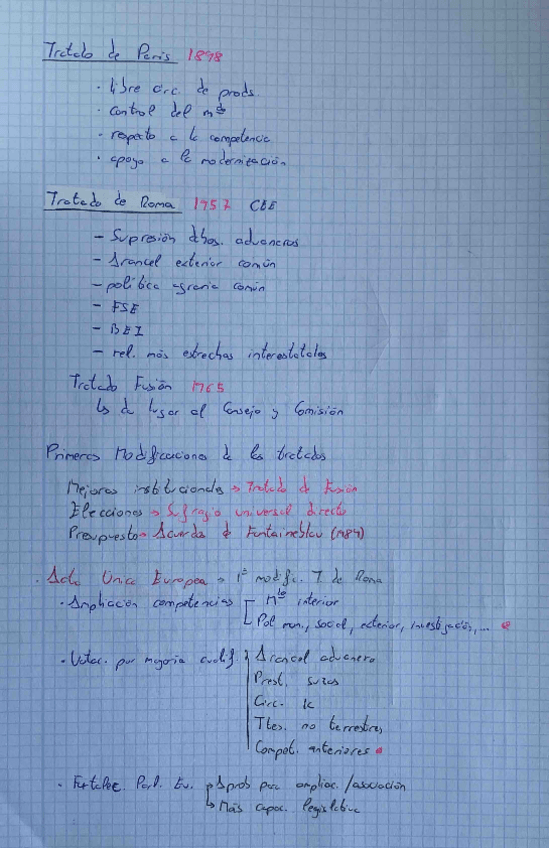 Tratado de Paris 1898
· libre circ. de prods.
· control del mdo
· respeto a la competencia
· apoyo a la modernización
Tratado de Roma 1957 CEE
- Supresión dhos. aduaneros
- Arancel exterior común
- política agraria común
- FSE
- BEI
- rel. más estrechas interestatales
Tratado Fusión 1965
↳ da lugar al Consejo y Comisión
Primeras Modificaciones de los tratados
Mejoras institucionales → Tratado de Fusión
Elecciones → Sufragio universal directo
Presupuesto → Acuerdo de Fontainebleau (1984)
· Acta Única Europea → 1ª modific. T. de Roma
· Ampliación competencias mdo interior
Pol mon., social, exterior, investigación, ...
· Votac. por mayoría cualif. Arancel aduanero
Prest. svcos
Circ. k
Ttes. no terrestres
Compet. anteriores
· Fortalec. Parl. Eu. ↳ Aprob para ampliac. /asociación
↳ Más capac. legislativa